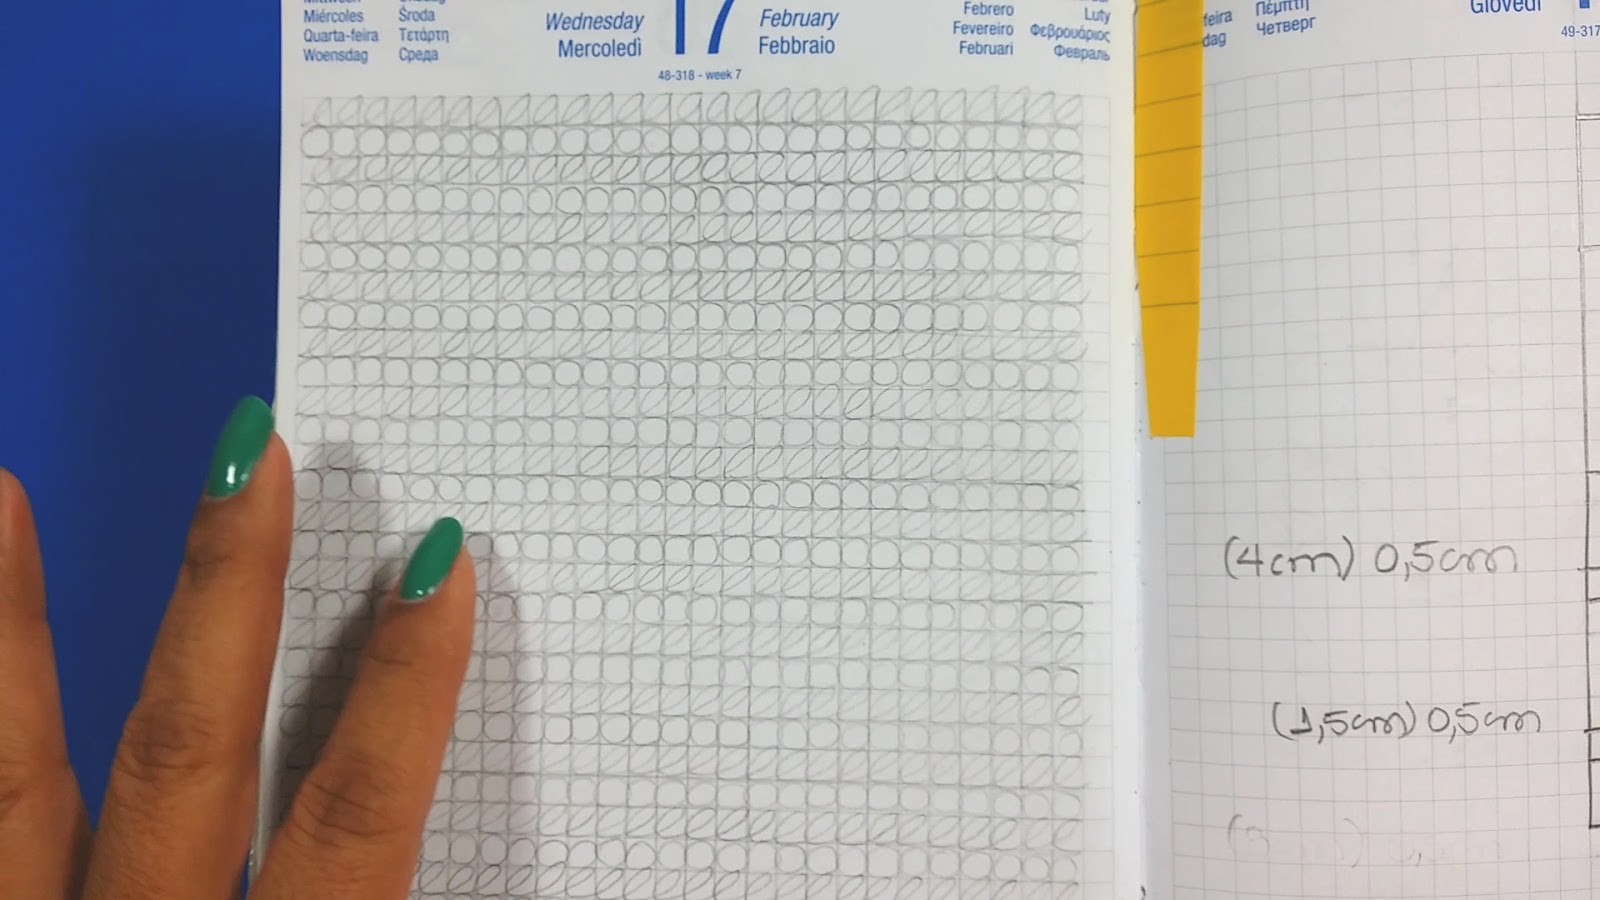 Miércoles Środa
Quarta-feira Τετάρτη
Woensdag Среда
Wednesday
Mercoledì
17
February
Febbraio
Febrero Luty
Fevereiro Φεβρουάριος
Februari Февраль
48-318 - week 7
feira Πέμπτη
dag Четверг
Giovedì
49-317
(4cm) 0,5cm
(1,5cm) 0,5cm